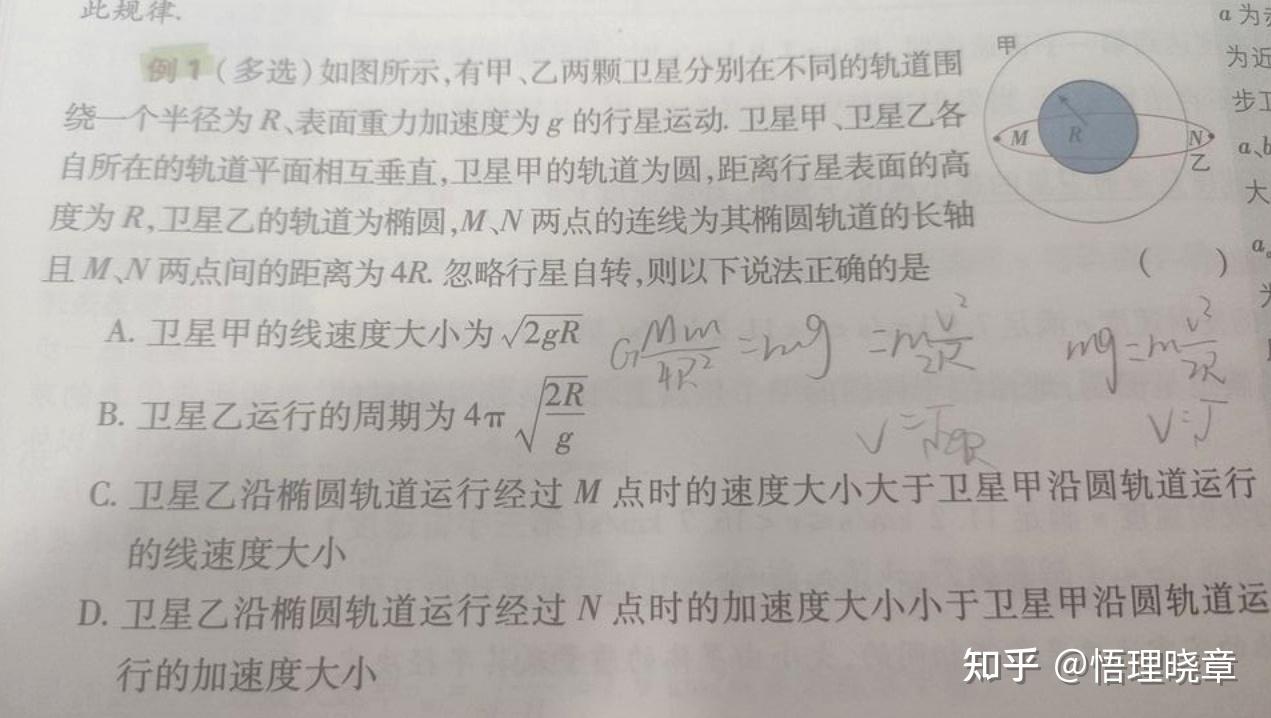 此规律.
例1(多选)如图所示,有甲、乙两颗卫星分别在不同的轨道围
绕一个半径为R、表面重力加速度为g的行星运动.卫星甲、卫星乙各
自所在的轨道平面相互垂直,卫星甲的轨道为圆,距离行星表面的高
度为R,卫星乙的轨道为椭圆,M、N两点的连线为其椭圆轨道的长轴
且M、N两点间的距离为4R.忽略行星自转,则以下说法正确的是 ( )
甲
M R N
乙
A. 卫星甲的线速度大小为√(2gR)
G Mm/4R² = mg = m v²/2R
mg = m v²/2R
B. 卫星乙运行的周期为4π√(2R/g)
V = √2gR
V = √
C. 卫星乙沿椭圆轨道运行经过M点时的速度大小大于卫星甲沿圆轨道运行
的线速度大小
D. 卫星乙沿椭圆轨道运行经过N点时的加速度大小小于卫星甲沿圆轨道运
行的加速度大小
a为
为近
步卫
a、b
大
知乎 @悟理晓章